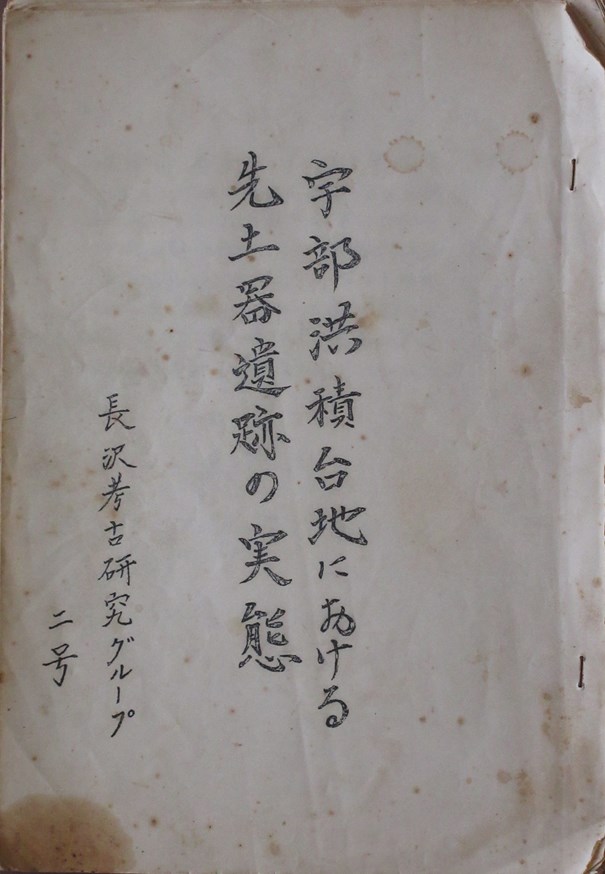 宇部洪積台地における
先土器遺跡の実態
長沢考古研究グループ
二号